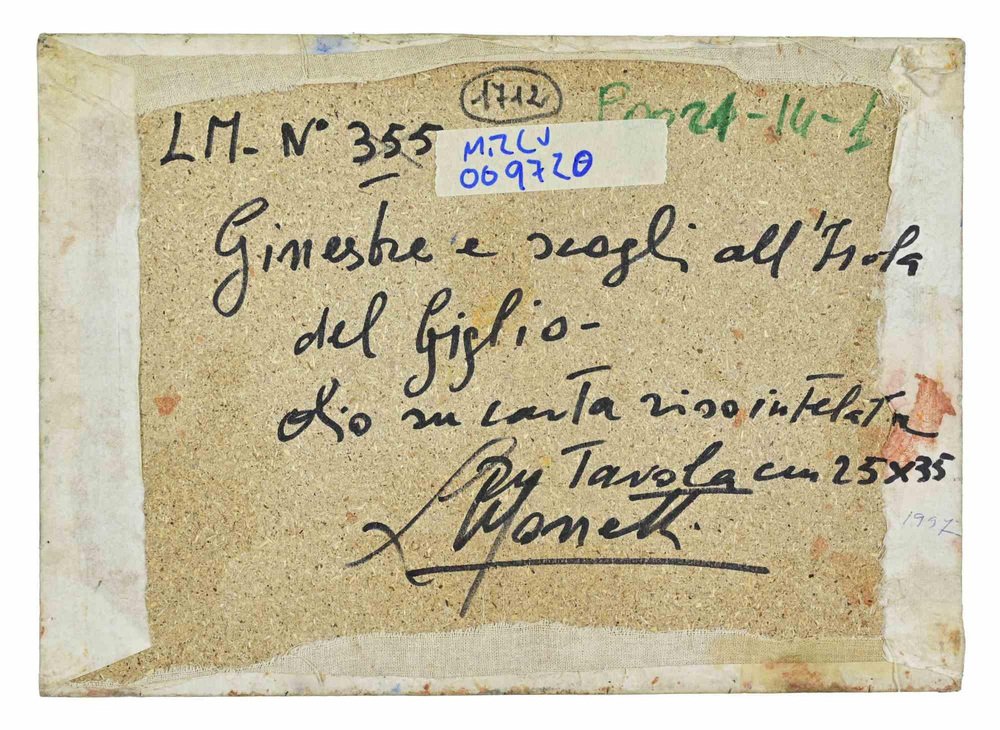 1712
LM- N° 355
-14-1
009720
Ginestre e scogli all'Isola
del Giglio-
olio su carta riso intelata
su Tavola cm 25x35
1997